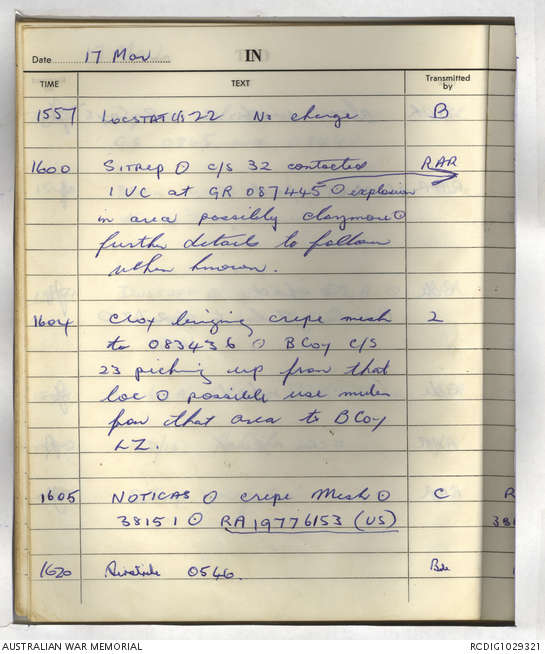 Date 17 Mar IN
TIME TEXT Transmitted by
1557 LOCSTAT C/S 22 No change B
1600 SITREP O C/S 32 contacted RAR
1 VC at GR 087445 O explosion
in area possibly claymore O
further details to follow
when known.
1604 C Coy bringing crepe mesh 2
to 083436 O B Coy C/S
23 picking up from that
loc O possibly use
from that area to B Coy
LZ.
1605 NOTICAS O crepe Mesh O C
38151 O RA 19776153 (US)
1620 Airstrike 0546. Bde
AUSTRALIAN WAR MEMORIAL RCDIG1029321